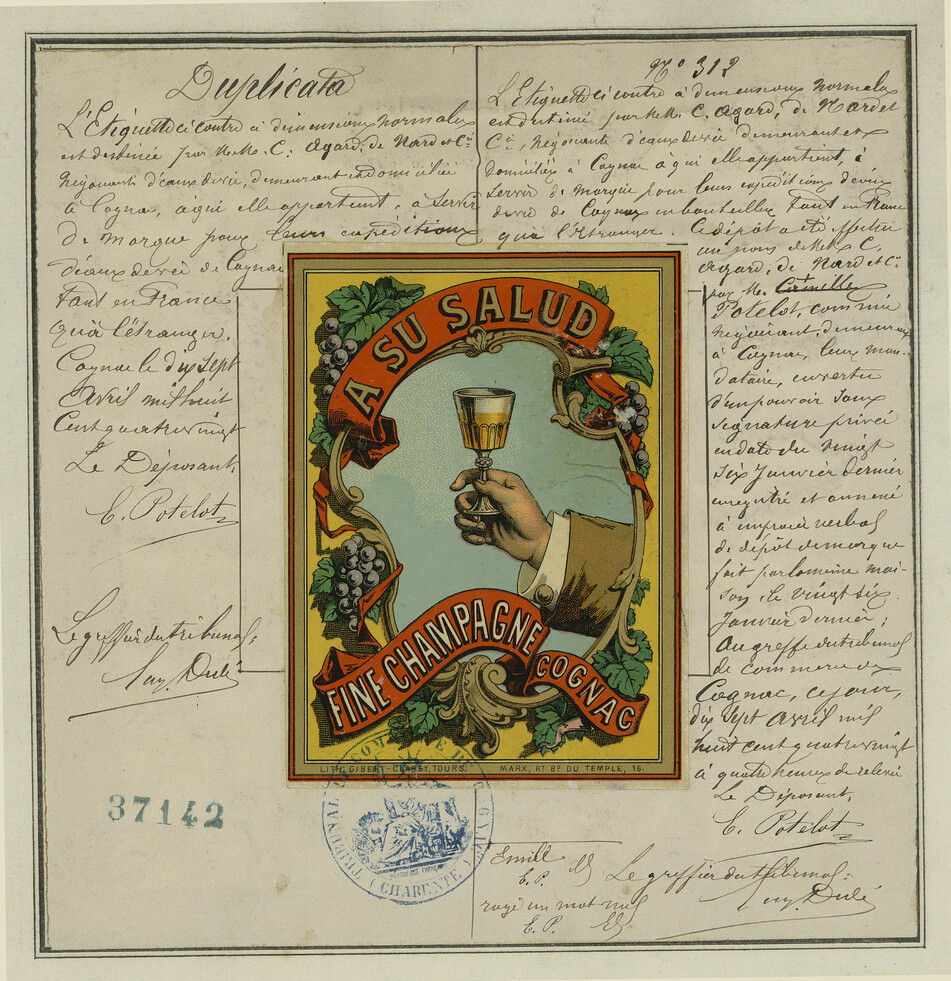 Duplicata
L'Etiquette ci contre à dimensions normales
est destinée par MM. C. Agard, de Nard et Cie
négociants d'eaux de vie, demeurant et domiciliés
à Cognac, à qui elle appartient, à servir
de marque pour leurs expéditions
d'eaux de vie de Cognac
tant en France
qu'à l'étranger.
Cognac le dix sept
Avril mil huit
Cent quatre vingt
Le Déposant,
E. Potelot
Le greffier du tribunal:
Aug. Dulé
37142
No 312
L'Etiquette ci contre à dimensions normales
est destiné par MM. C. Agard, de Nard et
Cie, négociants d'eaux de vie demeurant et
domiciliés à Cognac à qui elle appartient, à
servir de marque pour leurs expéditions d'eaux
de vie de Cognac en bouteilles tant en France
qu'à l'étranger. Ce dépôt a été effectué
au nom de MM. C.
Agard, de Nard et Cie
par Mr. Camille
Potelot, commis
négociant, demeurant
à Cognac, leur man-
dataire, en vertu
d'un pouvoir sous
signature privée
en date du vingt
six Janvier dernier
enregistré et annexé
à un procès verbal
de dépôt de marque
fait par la même mai-
son, le vingt six
Janvier dernier;
Au greffe du tribunal
de commerce de
Cognac, ce jour,
dix sept avril mil
huit cent quatre vingt
à quatre heures de relevée
Le Déposant,
E. Potelot
Emile
E. P.
rayé un mot nul
E. P.
Le greffier du tribunal:
Aug. Dulé
A SU SALUD
FINE CHAMPAGNE
COGNAC
LITH. GIBERT-CLAREY, TOURS.
MARX, Rt Bd DU TEMPLE, 16.
TRIBUNAL DE COMMERCE DE COGNAC
(CHARENTE)